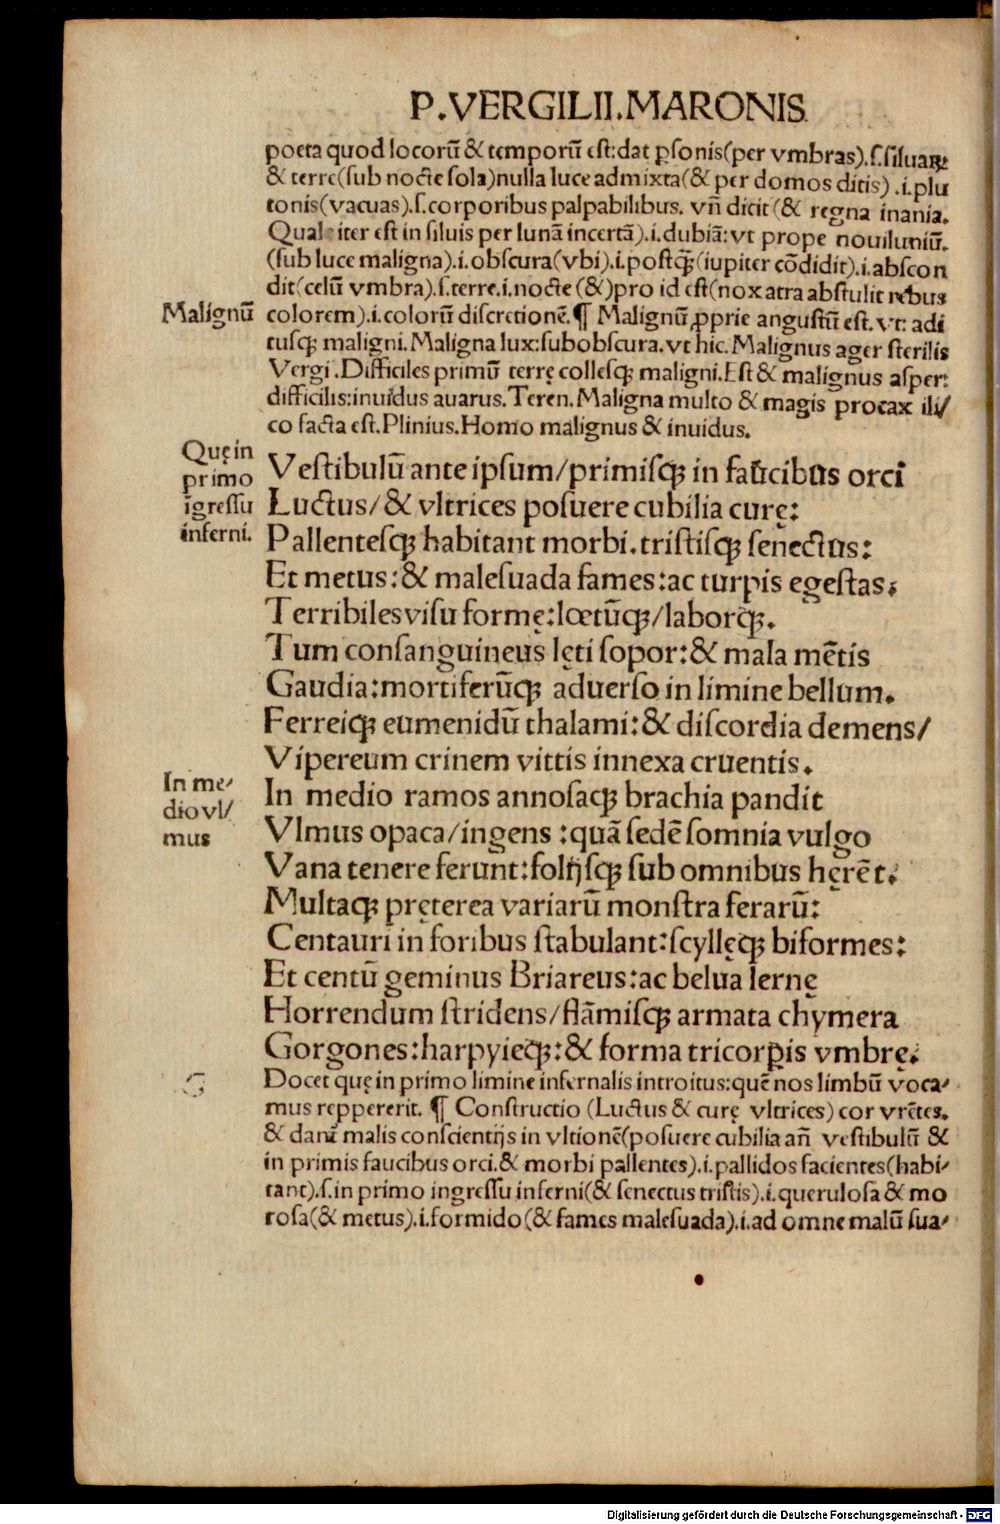 P.VERGILII.MARONIS
poeta quod locorũ & temporũ est:dat ꝑsonis(per vmbras).s.siluaꝝ:
& terre(sub nocte sola)nulla luce admixta(& per domos ditis) .i.plu
tonis(vacuas).s.corporibus palpabilibus. vñ dicit (& regna inania.
Qual iter est in siluis per lunã incertã).i.dubiã:vt prope nouiluniũ.
(sub luce maligna).i.obscura(vbi).i.postꝙ̃(iupiter cõdidit).i.abscon
dit(celũ vmbra).s.terre.i.nocte(&)pro id est(nox atra abstulit rebus
Malignũ
colorem).i.colorũ discretionẽ.¶ Malignũ ꝓprie angustũ est. vt: adi
tusqꝫ maligni.Maligna lux:subobscura.vt hic.Malignus ager sterilis
Vergi.Difficiles primũ terrę collesqꝫ maligni.Est & malignus asper:
difficilis:inuidus auarus.Teren.Maligna multo & magis procax ili/
co facta est.Plinius.Homo malignus & inuidus.
Quę in
primo
igressu
inferni.
Vestibulũ ante ipsum/primisqꝫ in faucibus orci
Luctus/& vltrices posuere cubilia curę:
Pallentesqꝫ habitant morbi.tristisqꝫ senectus:
Et metus:& malesuada fames:ac turpis egestas.
Terribiles visu formę:lœtũqꝫ/laborqꝫ.
Tum consanguineus lęti sopor:& mala mẽtis
Gaudia:mortiferũqꝫ aduerso in limine bellum.
Ferreiqꝫ eumenidũ thalami:& discordia demens/
Vipereum crinem vittis innexa cruentis.
In me/
dio vl/
mus
In medio ramos annosaqꝫ brachia pandit
Vlmus opaca/ingens :quã sedẽ somnia vulgo
Vana tenere ferunt:folijsqꝫ sub omnibus hęrẽt.
Multaqꝫ pręterea variarũ monstra ferarũ:
Centauri in foribus stabulant:scyllęqꝫ biformes:
Et centũ geminus Briareus:ac belua lernę
Horrendum stridens/flãmisqꝫ armata chymera
Gorgones:harpyięqꝫ:& forma tricorꝑis vmbrę.
Docet quę in primo limine infernalis introitus:quẽ nos limbũ voca/
mus reppererit. ¶ Constructio (Luctus & curę vltrices) cor vrẽtes.
& dant̃ malis conscientijs in vltionẽ(posuere cubilia añ vestibulũ &
in primis faucibus orci.& morbi pallentes).i.pallidos facientes(habi/
tant).s.in primo ingressu inferni(& senectus tristis).i.querulosa & mo
rosa(& metus).i.formido(& fames malesuada).i.ad omne malũ sua/
Digitalisierung gefördert durch die Deutsche Forschungsgemeinschaft - DFG